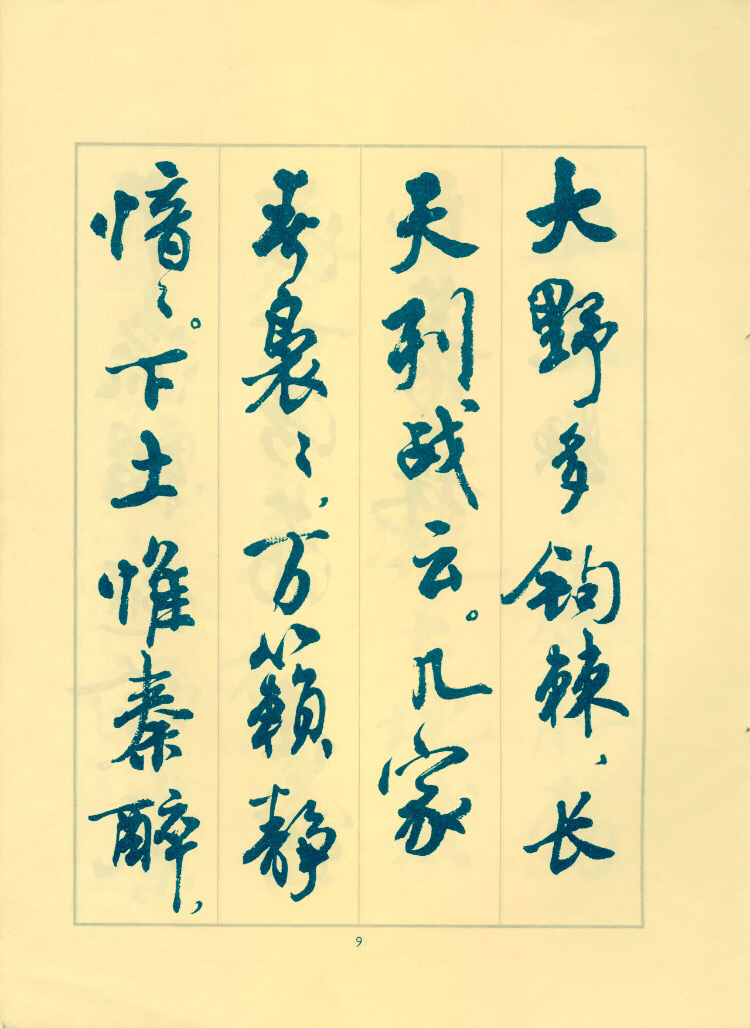 大野多鉤棘，长
天列战云。几家
春裊〻，万籟静
愔〻。下土惟秦醉，
9